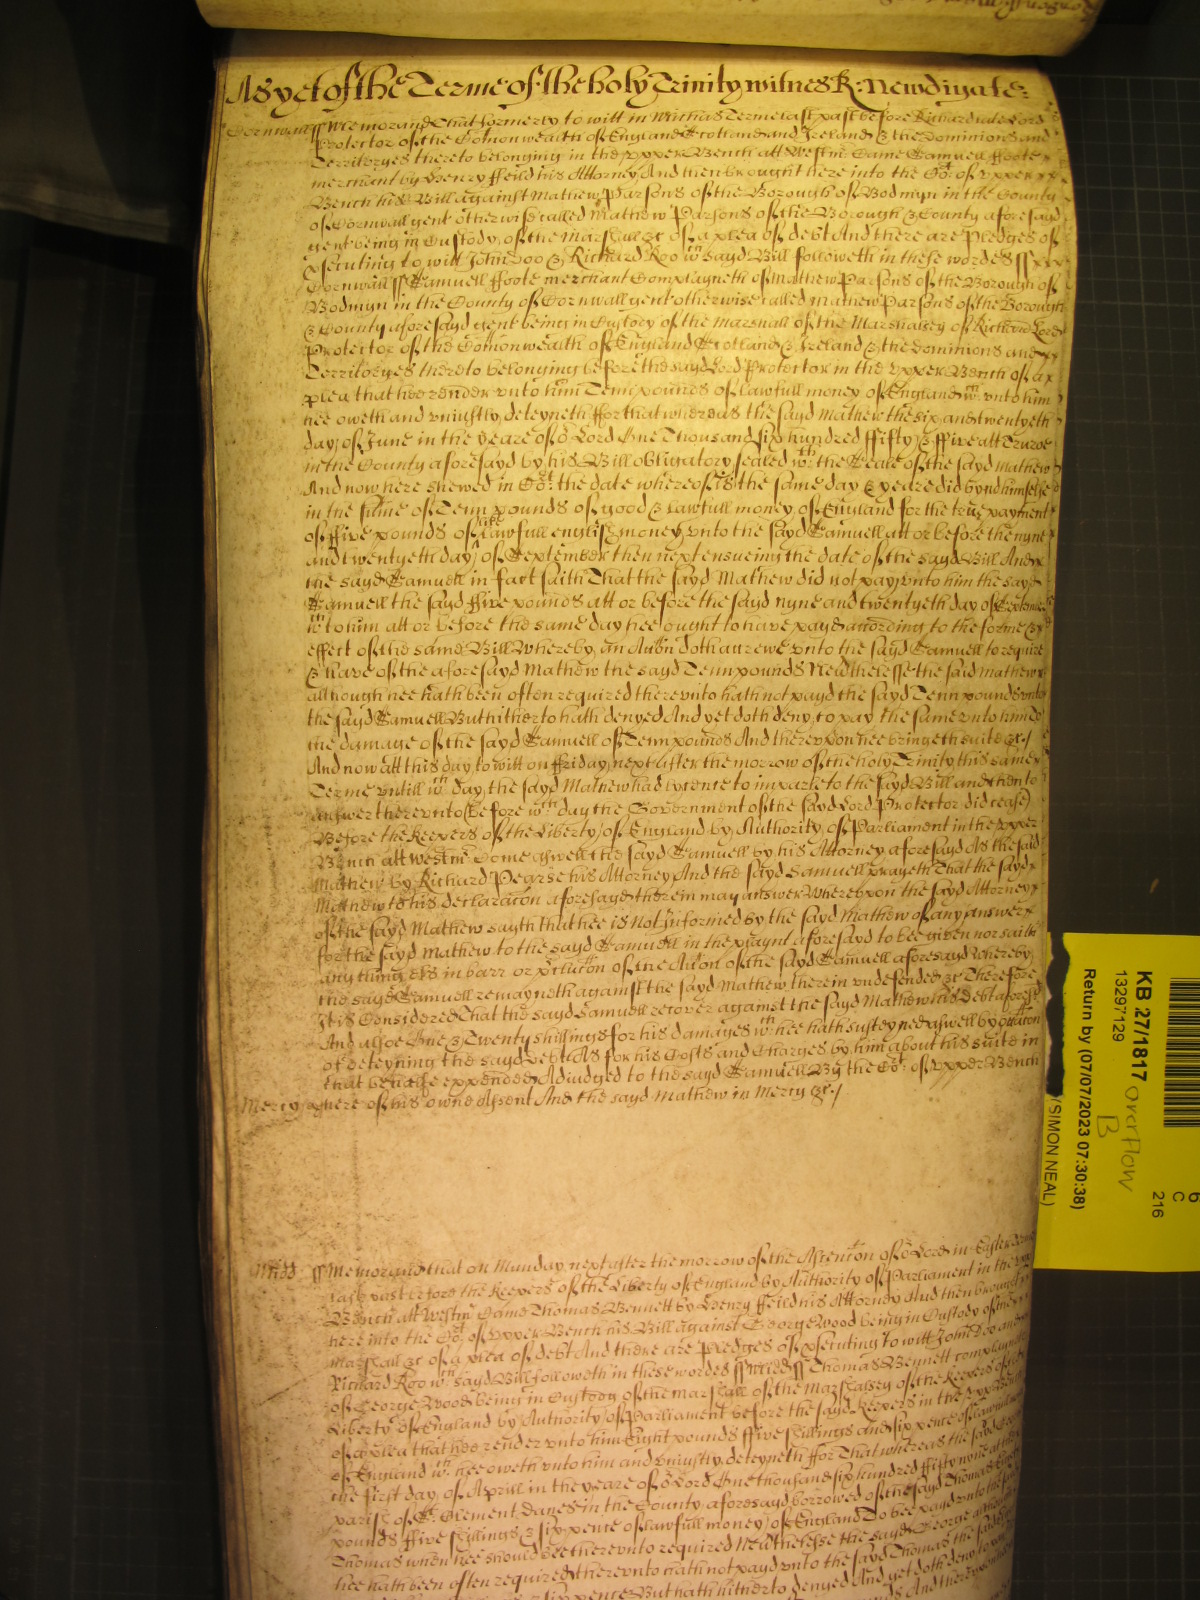 As yet of the Terme of the holy Trinity witnes R: Newdigate:
Cornwall ss Memorand That formerly to witt in Michas Terme last past before Richard late Lord
Protector of the Comonwealth of England Scotland and Ireland & the Dominions and
Territoryes thereto belonging in the vpper Bench att Westmr Came Samuell ffoote
merchant by Henry ffeild his Attorney And then brought here into the Cot of vpper
Bench his Bill against Mathew Parsons of the Borough of Bodmyn in the County
of Cornwall gent otherwise called Mathew Parsons of the Borough & County aforesayd
gent being in Custody of the Marshall &c of a plea of debt And there are Pledges of
psecuting to witt John Doo & Richard Roo wch sayd Bill followeth in these wordes ss
Cornwall ss Samuell ffoote merchant Complayneth of Mathew Parsons of the Borough of
Bodmyn in the County of Cornwall gent otherwise called Mathew Parsons of the Borough
& County aforesayd gent being in Custody of the Marshall of the Marshalsey of Richard Lord
Protector of the Comonwealth of England Scotland & Ireland & the Dominions and
Territoryes thereto belonging before the sayd Lord Protector in the vpper Bench of a
plea that hee render vnto him Tenn pounds of lawfull money of England wch vnto him
hee oweth and vniustly deteyneth ffor that whereas the sayd Mathew the six and twentyeth
day of June in the yeare of or Lord One Thousand six hundred ffifty & ffive att Truroe
in the County aforesayd by his Bill obligatory sealed wth the Seale of the sayd Mathew
And now here shewed in Cot the date whereof is the same day & yeare did bynd himselfe
in the sume of Tenn pounds of good & lawfull money of England for the true payment
of ffive pounds of like lawfull english money vnto the sayd Samuell att or before the nyne
and twentyeth day of September then next ensueing the date of the sayd Bill And
the sayd Samuell in fact saith That the sayd Mathew did not pay vnto him the sayd
Samuell the sayd ffive pounds att or before the sayd nyne and twentyeth day of September
wch to him att or before the same day hee ought to have payd according to the forme &
effect of the same Bill Whereby an Accon doth accrewe vnto the sayd Samuell to require
& have of the aforesayd Mathew the sayd Tenn pounds Neverthelesse the said Mathew
although hee hath been often required therevnto hath not payd the sayd Tenn pounds vnto
the sayd Samuell But hitherto hath denyed And yet doth deny to pay the same vnto him to
the damage of the sayd Samuell of Tenn pounds And therevpon hee bringeth suite &c
And now att this day to witt on ffriday next after the morrow of the holy Trinity this same
Terme vntill wch day the sayd Mathew had lycence to imparle to the sayd Bill and then to
answer therevnto (before wch day the Government of the sayd Lord Protector did cease)
Before the Keepers of the Liberty of England by Authority of Parliament in the vpper
Bench att Westmr Come aswell the sayd Samuell by his Attorney aforesayd As the said
Mathew by Richard Pearse his Attorney And the sayd Samuell prayeth That the sayd
Mathew to his declaracon aforesayd therein may answer Wherevpon the sayd Attorney
of the sayd Mathew sayth that hee is Not Informed by the sayd Mathew of any answer
for the sayd Mathew to the sayd Samuell in the playnt aforesayd to bee given nor saith
any thing els in barr or pclucon of the Accon of the sayd Samuell aforesayd Whereby
the sayd Samuell remayneth against the sayd Mathew therein vndefended &c Therefore
It is Considered That the sayd Samuell recover against the sayd Mathew his Debt aforesd
And alsoe One & Twenty shillings for his damages wch hee hath susteyned aswell by occacon
of deteyning the sayd debt As for his Costs and Charges by him about his suite in
that behalfe expended Adiudged to the sayd Samuell By the Cot of vpper Bench
Mercy here of his owne Assent And the sayd Mathew in Mercy &c
Midd ss Memorand that on Munday next after the morrow of the Ascencon of or Lord in Easter Terme
last past before the Keepers of the Liberty of England by Authority of Parliament in the vpp
Bench att Westmr Came Thomas Bennett by Henry ffeild his Attorney And then brought
here into the Cot of vpper Bench his Bill against George Wood being in Custody of the
Marshall &c of a plea of debt And there are Pledges of psecuting to witt John Doo and
Richard Roo wch sayd Bill followeth in these wordes ss Midd ss Thomas Bennett complayneth
of George Wood being in Custody of the Marshall of the Marshalsey of the Keepers of the
Liberty of England by Authority of Parliament before the sayd Keepers in the vpp Bench
of a plea that hee render vnto him Eight pounds ffive shillings and six pence of lawfull
of England wch hee oweth vnto him and vniustly deteyneth ffor That whereas the sayd
the first day of Aprill in the yeare of or Lord One thousand six hundred ffifty nyne att the
parish of St Clement Danes in the County aforesayd borrowed of the sayd Thomas Eight
pounds ffive shillings & six pence of lawfull money of England To bee payd vnto the sayd
Thomas when hee should bee therevnto required Neverthelesse the sayd George although
hee hath been often required therevnto hath not payd vnto the sayd Thomas the said
six pence But hath hitherto denyed And yet doth deny to pay
And therevpon
KB 27/1817 overflow
B
13297129
Return by (07/07/2023 07:30:38)
(SIMON NEAL)
6
C
216